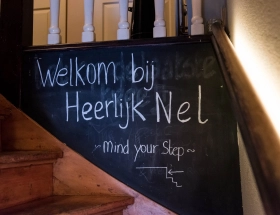 Welkom bij
Heerlijk Nel
~ mind your step ~